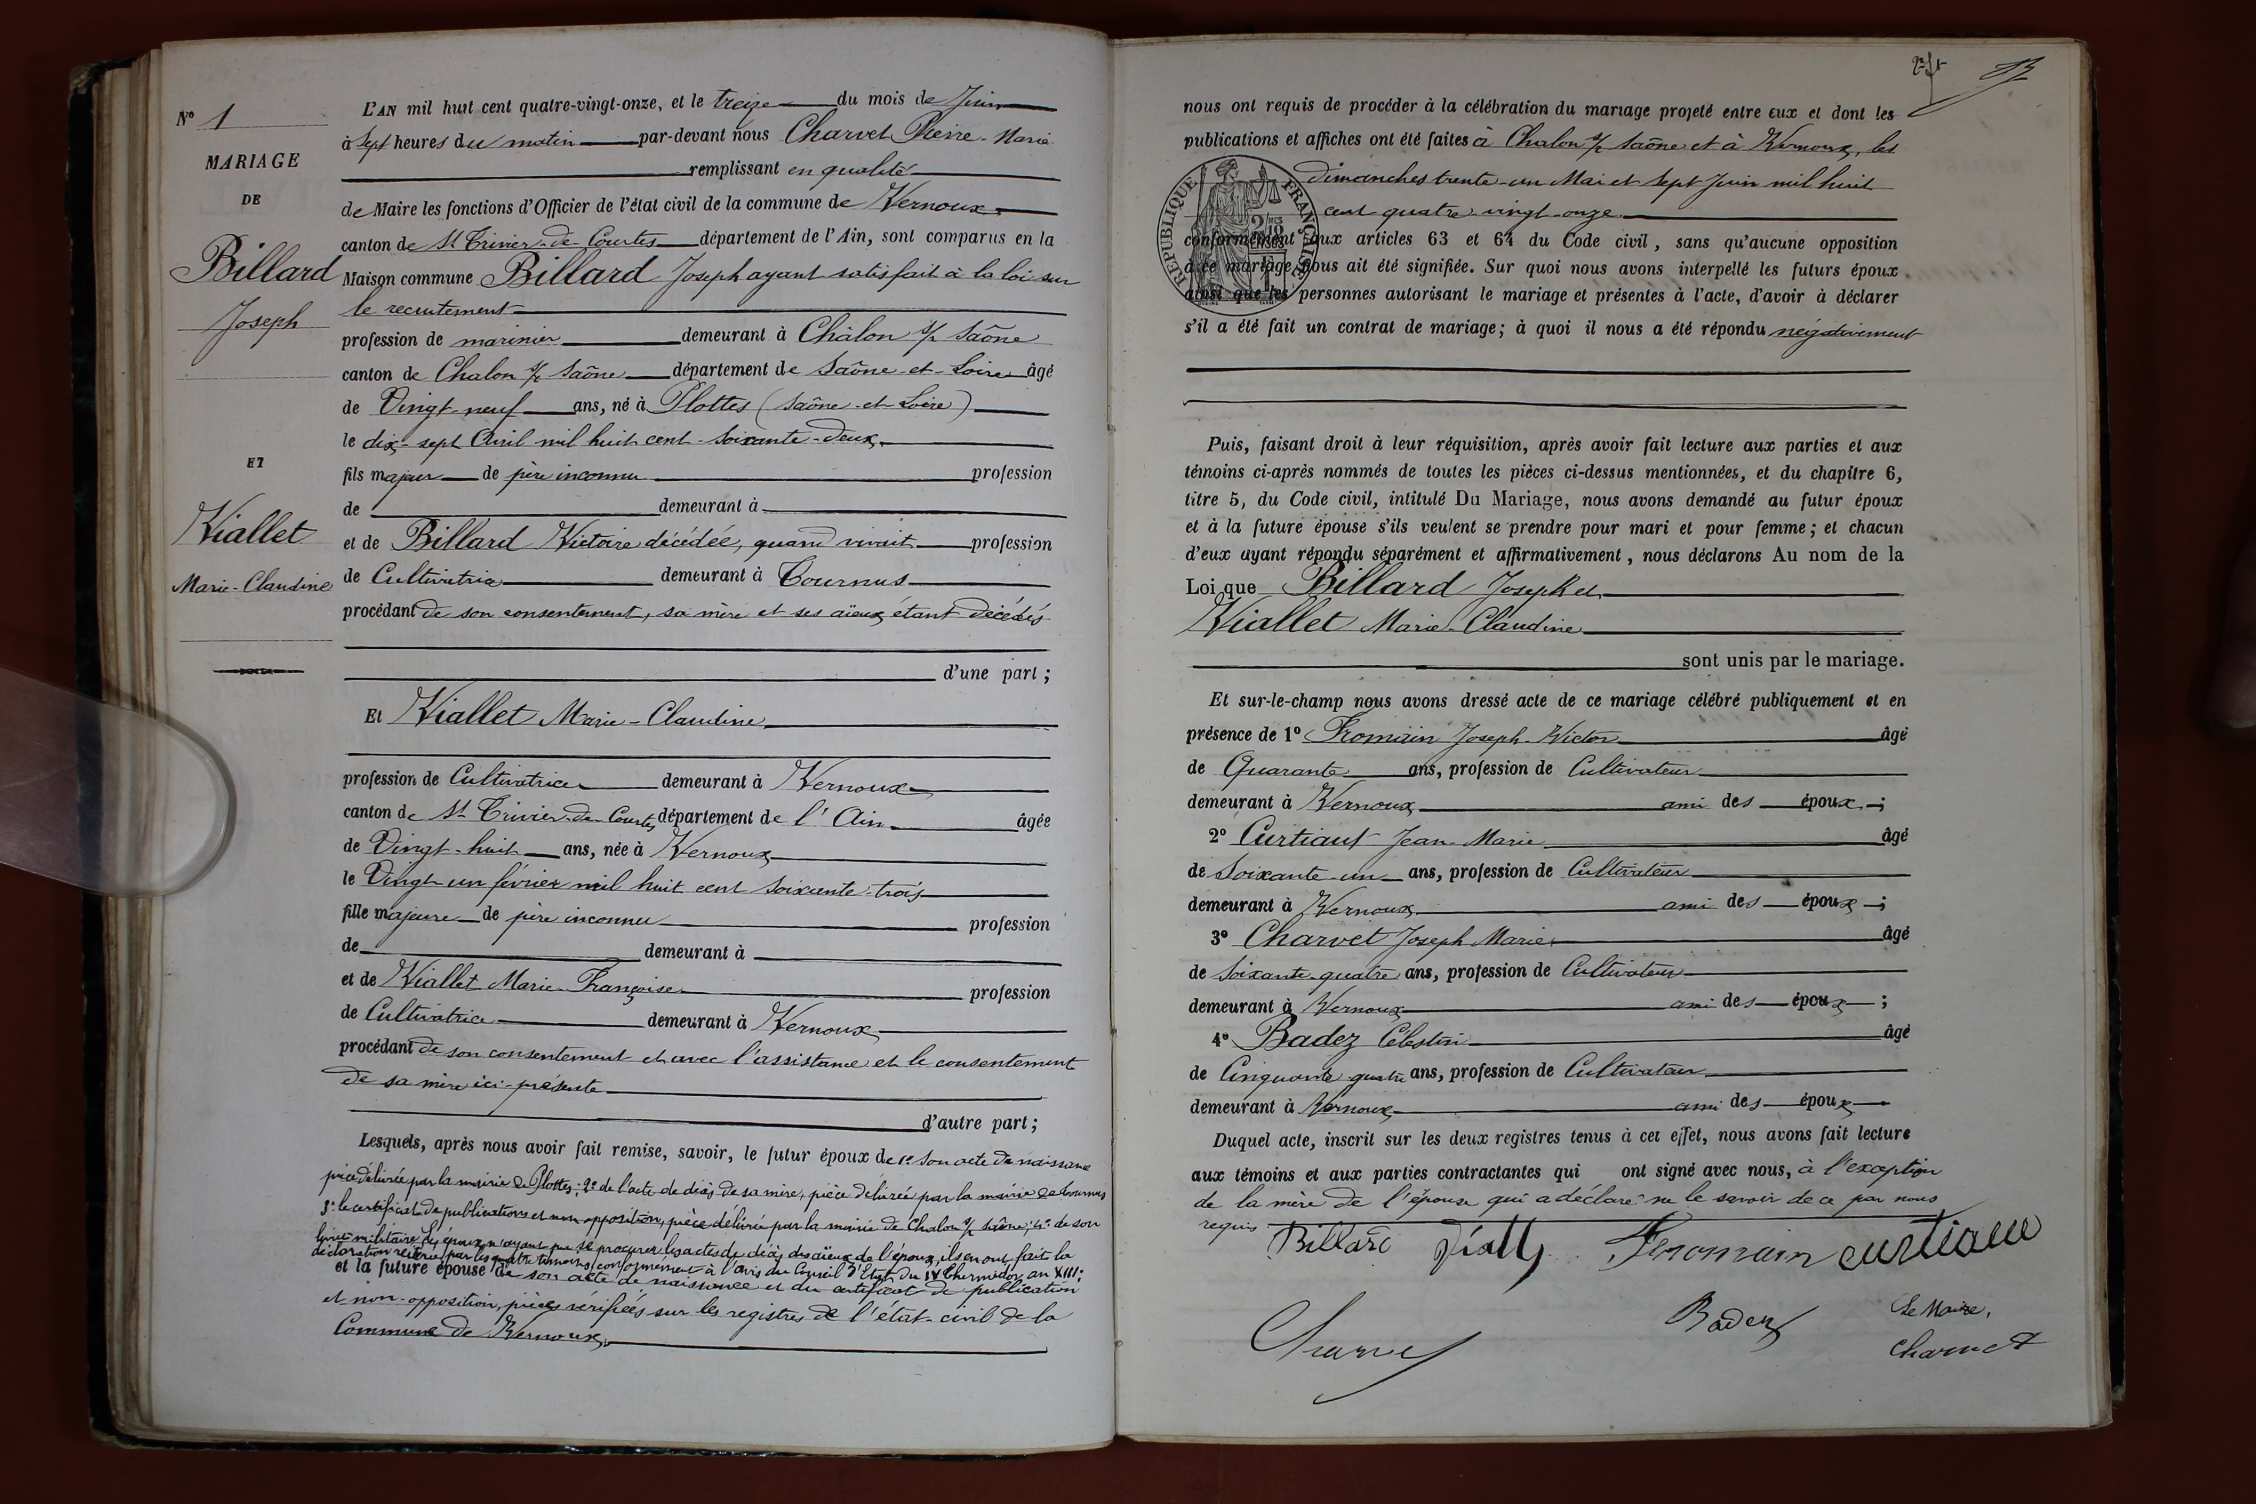 N° 1
MARIAGE
DE
Billard
Joseph
ET
Viallet
Marie-Claudine
L'AN mil huit cent quatre-vingt-onze, et le treize du mois de Juin
à sept heures du matin par-devant nous Charvet Pierre-Marie
remplissant en qualité
de Maire les fonctions d'Officier de l'état civil de la commune de Vernoux
canton de St Trivier-de-Courtes département de l'Ain, sont comparus en la
Maison commune Billard Joseph ayant satisfait à la loi sur
le recrutement
profession de marinier demeurant à Châlon s/ Saône
canton de Chalon s/ Saône département de Saône-et-Loire âgé
de Vingt-neuf ans, né à Plottes (Saône-et-Loire)
le dix-sept Avril mil huit cent soixante-deux
fils majeur de père inconnu profession
de demeurant à
et de Billard Victoire décédée, quand vivait profession
de Cultivatrice demeurant à Tournus
procédant de son consentement, sa mère et ses aïeux étant décédés
d'une part ;
Et Viallet Marie-Claudine
profession de Cultivatrice demeurant à Vernoux
canton de St Trivier-de-Courtes département de l'Ain âgée
de Vingt-huit ans, née à Vernoux
le Vingt un février mil huit cent soixante-trois
fille majeure de père inconnu profession
de demeurant à
et de Viallet Marie-Françoise profession
de Cultivatrice demeurant à Vernoux
procédant de son consentement et avec l'assistance et le consentement
de sa mère ici-présente
d'autre part ;
Lesquels, après nous avoir fait remise, savoir, le futur époux de 1° son acte de naissance
pièce délivrée par la mairie de Plottes ; 2° de l'acte de décès de sa mère, pièce délivrée par la mairie de Tournus
3° le certificat de publications et non opposition, pièce délivrée par la mairie de Chalon s/ Saône ; 4° de son
livret militaire. Les époux n'ayant pu se procurer les actes de décès des aïeux de l'époux, ils en ont fait la
déclaration réitérée par les quatre témoins, conformément à l'avis du Conseil d'Etat du IV Thermidor an XIII ;
et la future épouse de son acte de naissance et du certificat de publication
et non-opposition, pièces vérifiées sur les registres de l'état-civil de la
Commune de Vernoux
nous ont requis de procéder à la célébration du mariage projeté entre eux et dont les
publications et affiches ont été faites à Chalon s/ Saône et à Vernoux, les
dimanches trente-un Mai et sept Juin mil huit
cent quatre-vingt-onze
RÉPUBLIQUE FRANÇAISE
conformément aux articles 63 et 64 du Code civil, sans qu'aucune opposition
à ce mariage nous ait été signifiée. Sur quoi nous avons interpellé les futurs époux
ainsi que les personnes autorisant le mariage et présentes à l'acte, d'avoir à déclarer
s'il a été fait un contrat de mariage ; à quoi il nous a été répondu négativement
Puis, faisant droit à leur réquisition, après avoir fait lecture aux parties et aux
témoins ci-après nommés de toutes les pièces ci-dessus mentionnées, et du chapitre 6,
titre 5, du Code civil, intitulé Du Mariage, nous avons demandé au futur époux
et à la future épouse s'ils veulent se prendre pour mari et pour femme ; et chacun
d'eux ayant répondu séparément et affirmativement, nous déclarons Au nom de la
Loi que Billard Joseph et
Viallet Marie-Claudine
sont unis par le mariage.
Et sur-le-champ nous avons dressé acte de ce mariage célébré publiquement et en
présence de 1° Fromain Joseph-Victor âgé
de Quarante ans, profession de Cultivateur
demeurant à Vernoux ami des époux ;
2° Curtiaut Jean-Marie âgé
de Soixante-un ans, profession de Cultivateur
demeurant à Vernoux ami des époux ;
3° Charvet Joseph Marie âgé
de soixante-quatre ans, profession de Cultivateur
demeurant à Vernoux ami des époux ;
4° Badez Célestin âgé
de Cinquante quatre ans, profession de Cultivateur
demeurant à Vernoux ami des époux
Duquel acte, inscrit sur les deux registres tenus à cet effet, nous avons fait lecture
aux témoins et aux parties contractantes qui ont signé avec nous, à l'exception
de la mère de l'épouse qui a déclaré ne le savoir de ce par nous
requis
Billard Fromain
Badez Le Maire,
Charvet